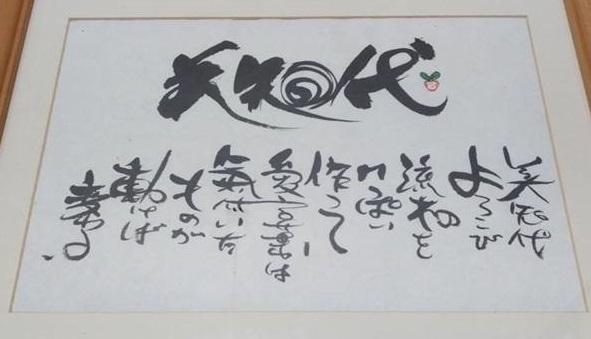 美知代
美知代
よろこび
流れを
いっぱい
作って
愛言葉は
氣付いた
ものが
動けば